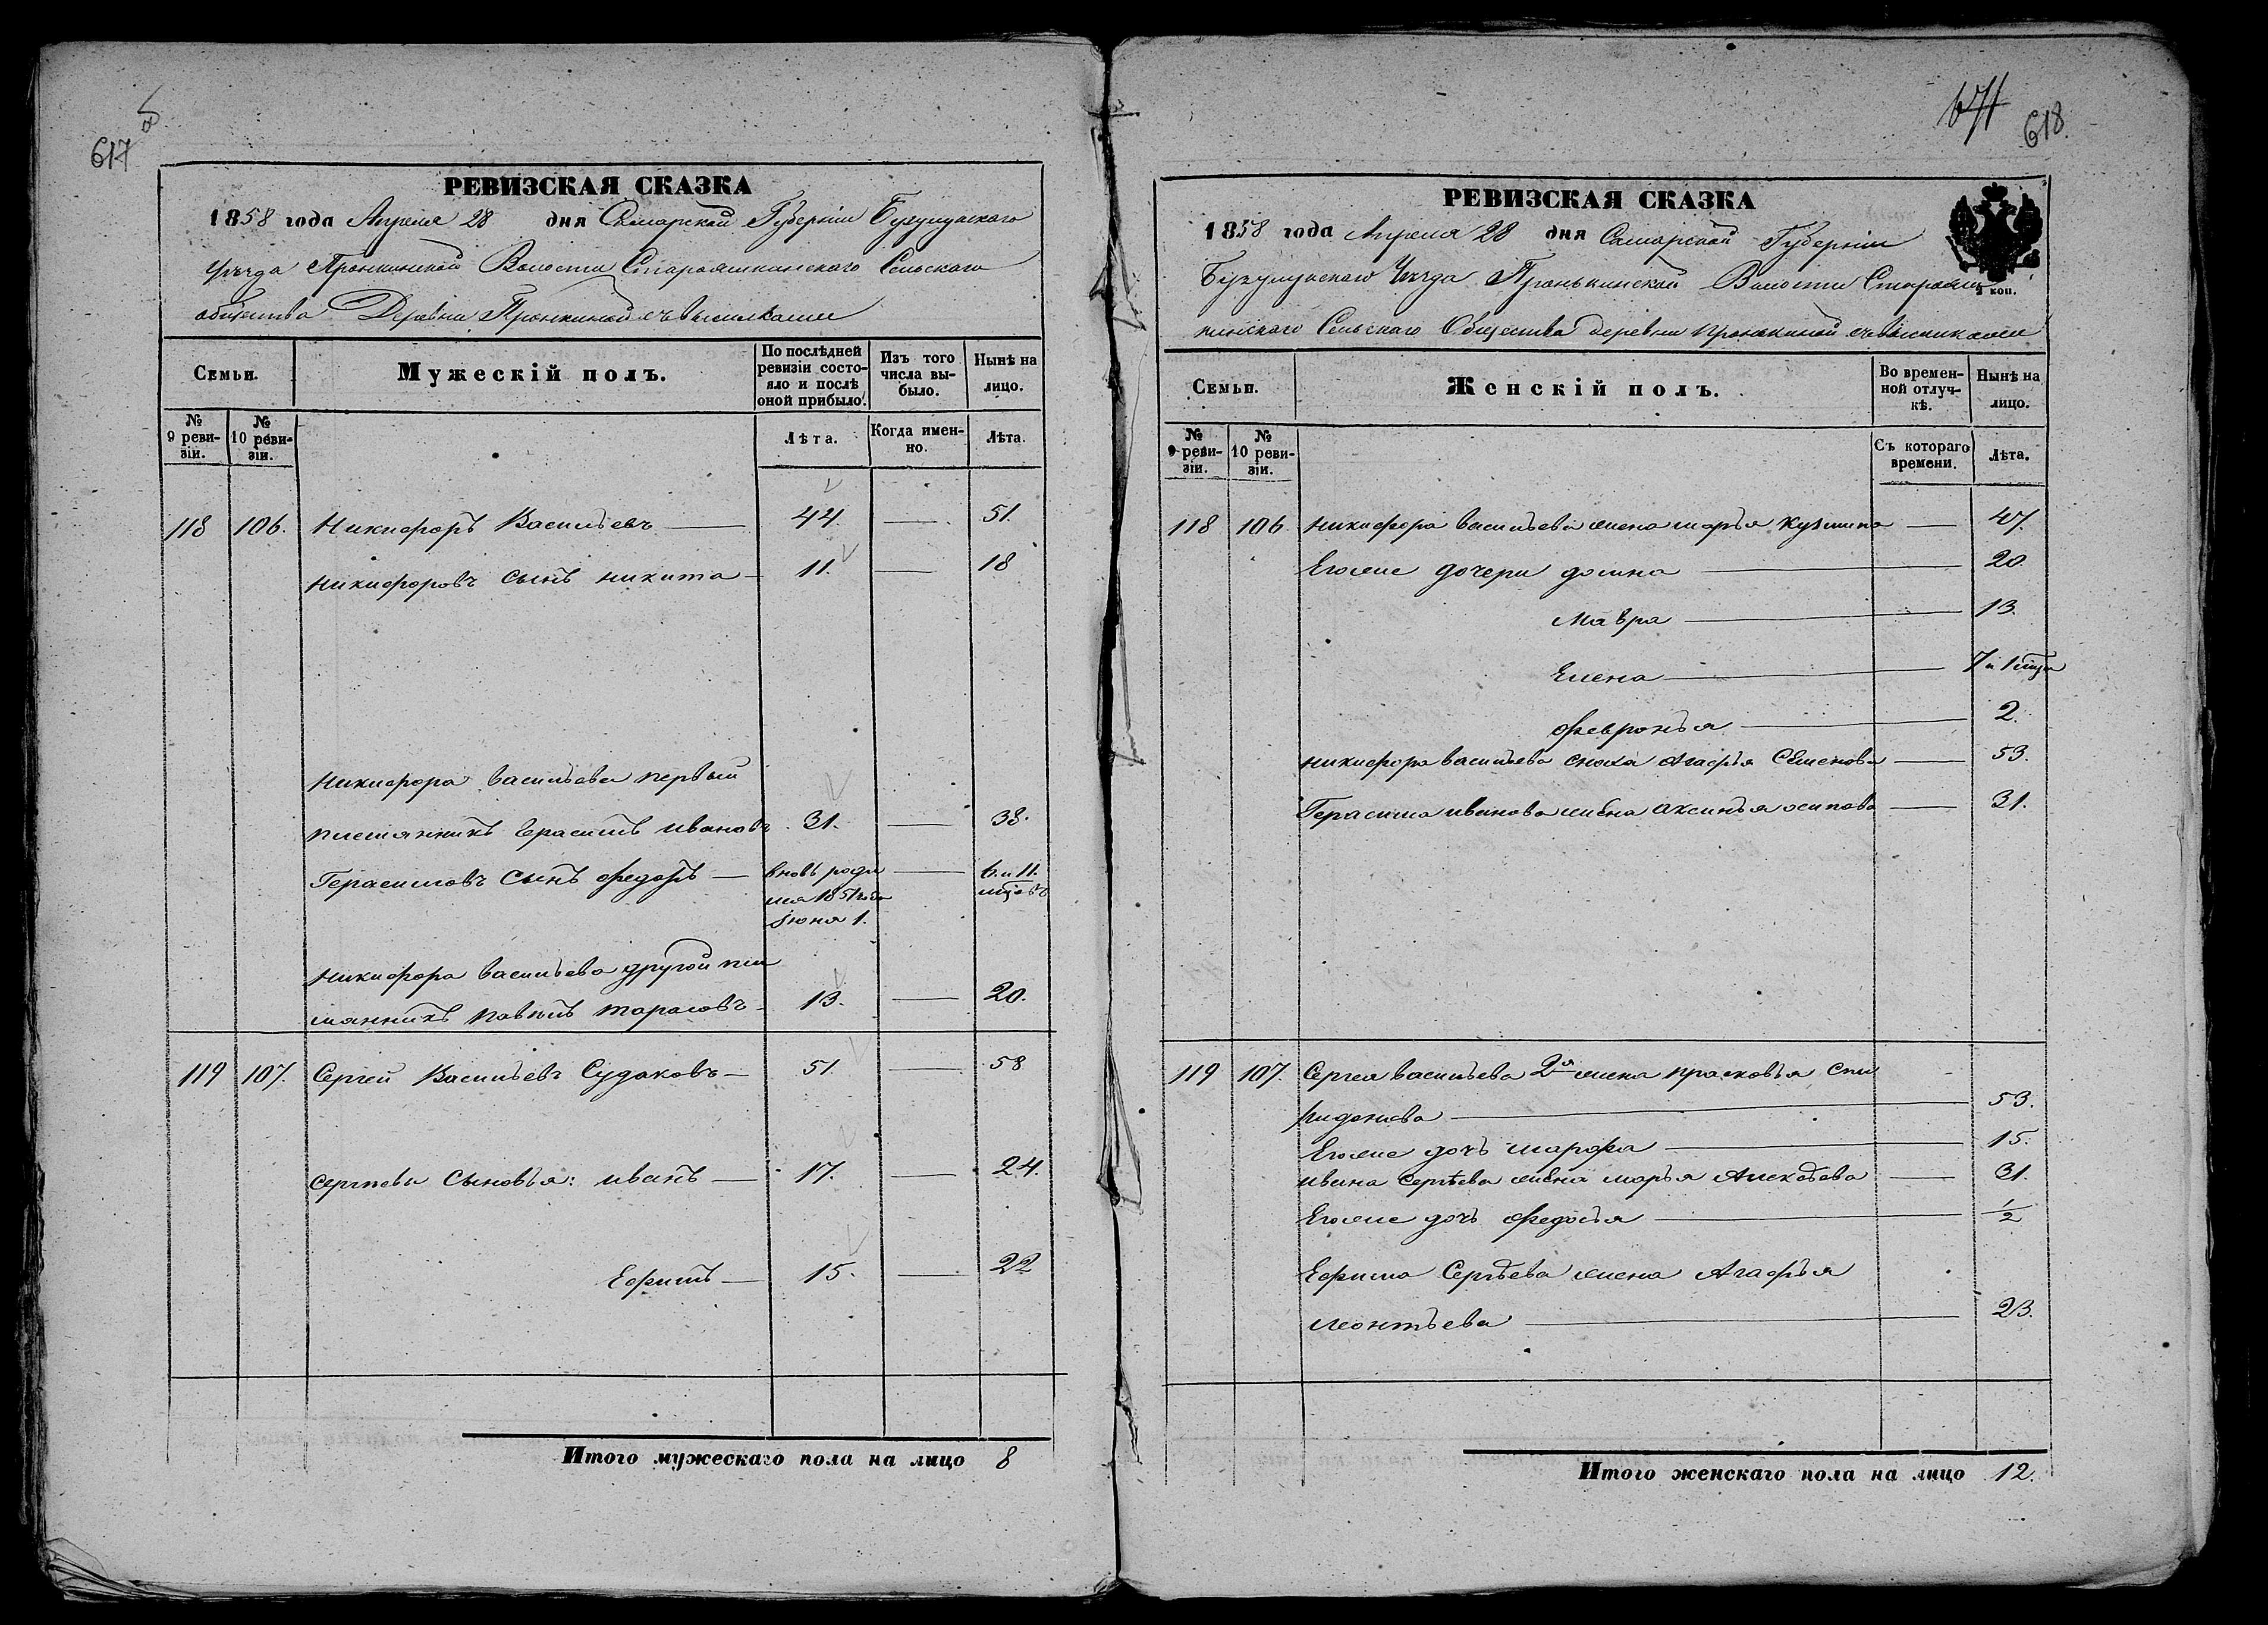 617
РЕВИЗСКАЯ СКАЗКА
1858 года Апреля 28 дня Самарской Губерніи Бузулукскаго
Уѣзда Пронкинской Волости Староашкинского Сельского
общества Деревни Пронкиной съ выселками
Семьи.
Мужескій полъ.
По послѣдней ревизіи состояло и послѣ оной прибыло.
Изъ того числа выбыло.
Нынѣ на лицо.
№ 9 ревизіи.
№ 10 ревизіи.
Лѣта.
Когда именно.
Лѣта.
118 106. Никифоръ Васильевъ 44. 51.
Никифоровъ сынъ никита 11. 18
Никифора васильева первый
племянникъ Герасимъ ивановъ 31. 38.
Герасимовъ сынъ федоръ вновь роди 6. и 11.
лся 1851 года мѣцовъ
Іюня 1.
Никифора васильева другой пле
мянникъ павелъ тарасовъ 13. 20.
119 107. Сергей Васильевъ Судаковъ 51. 58
Сергѣевы сыновья: иванъ 17. 24.
Ефимъ 15. 22
Итого мужескаго пола на лицо 8
618.
РЕВИЗСКАЯ СКАЗКА
1858 года Апреля 28 дня Самарской Губерніи
Бузулукскаго Уѣзда Пронькинской Волости Староаш
кинскаго Сельскаго Общества деревни пронькиной съ выселками
коп.
Семьи.
Женскій полъ.
Во временной отлучкѣ.
Нынѣ на лицо.
№ 9 ревизіи.
№ 10 ревизіи.
Съ котораго времени.
Лѣта.
118 106 Никифора васильева жена марья кузмина 47.
Егоже дочери домна 20.
Мавра 13.
Елена 7 и 1 мѣца
Февронья 2.
никифора васильева сноха Агафья Семенова 53.
Герасима иванова жена аксинья осипова 31.
119 107. Сергея васильева 2я жена прасковья Спи
ридонова 53.
Егоже дочь марфа 15.
ивана Сергѣева жена марья Алексѣева 31.
Егоже дочь Федосья 1/2
Ефима Сергѣева жена Агафья
леонтьева 23.
Итого женскаго пола на лицо 12.